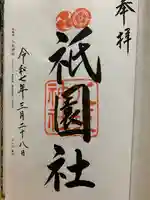 奉拝
祇園社
令和七年三月二十八日